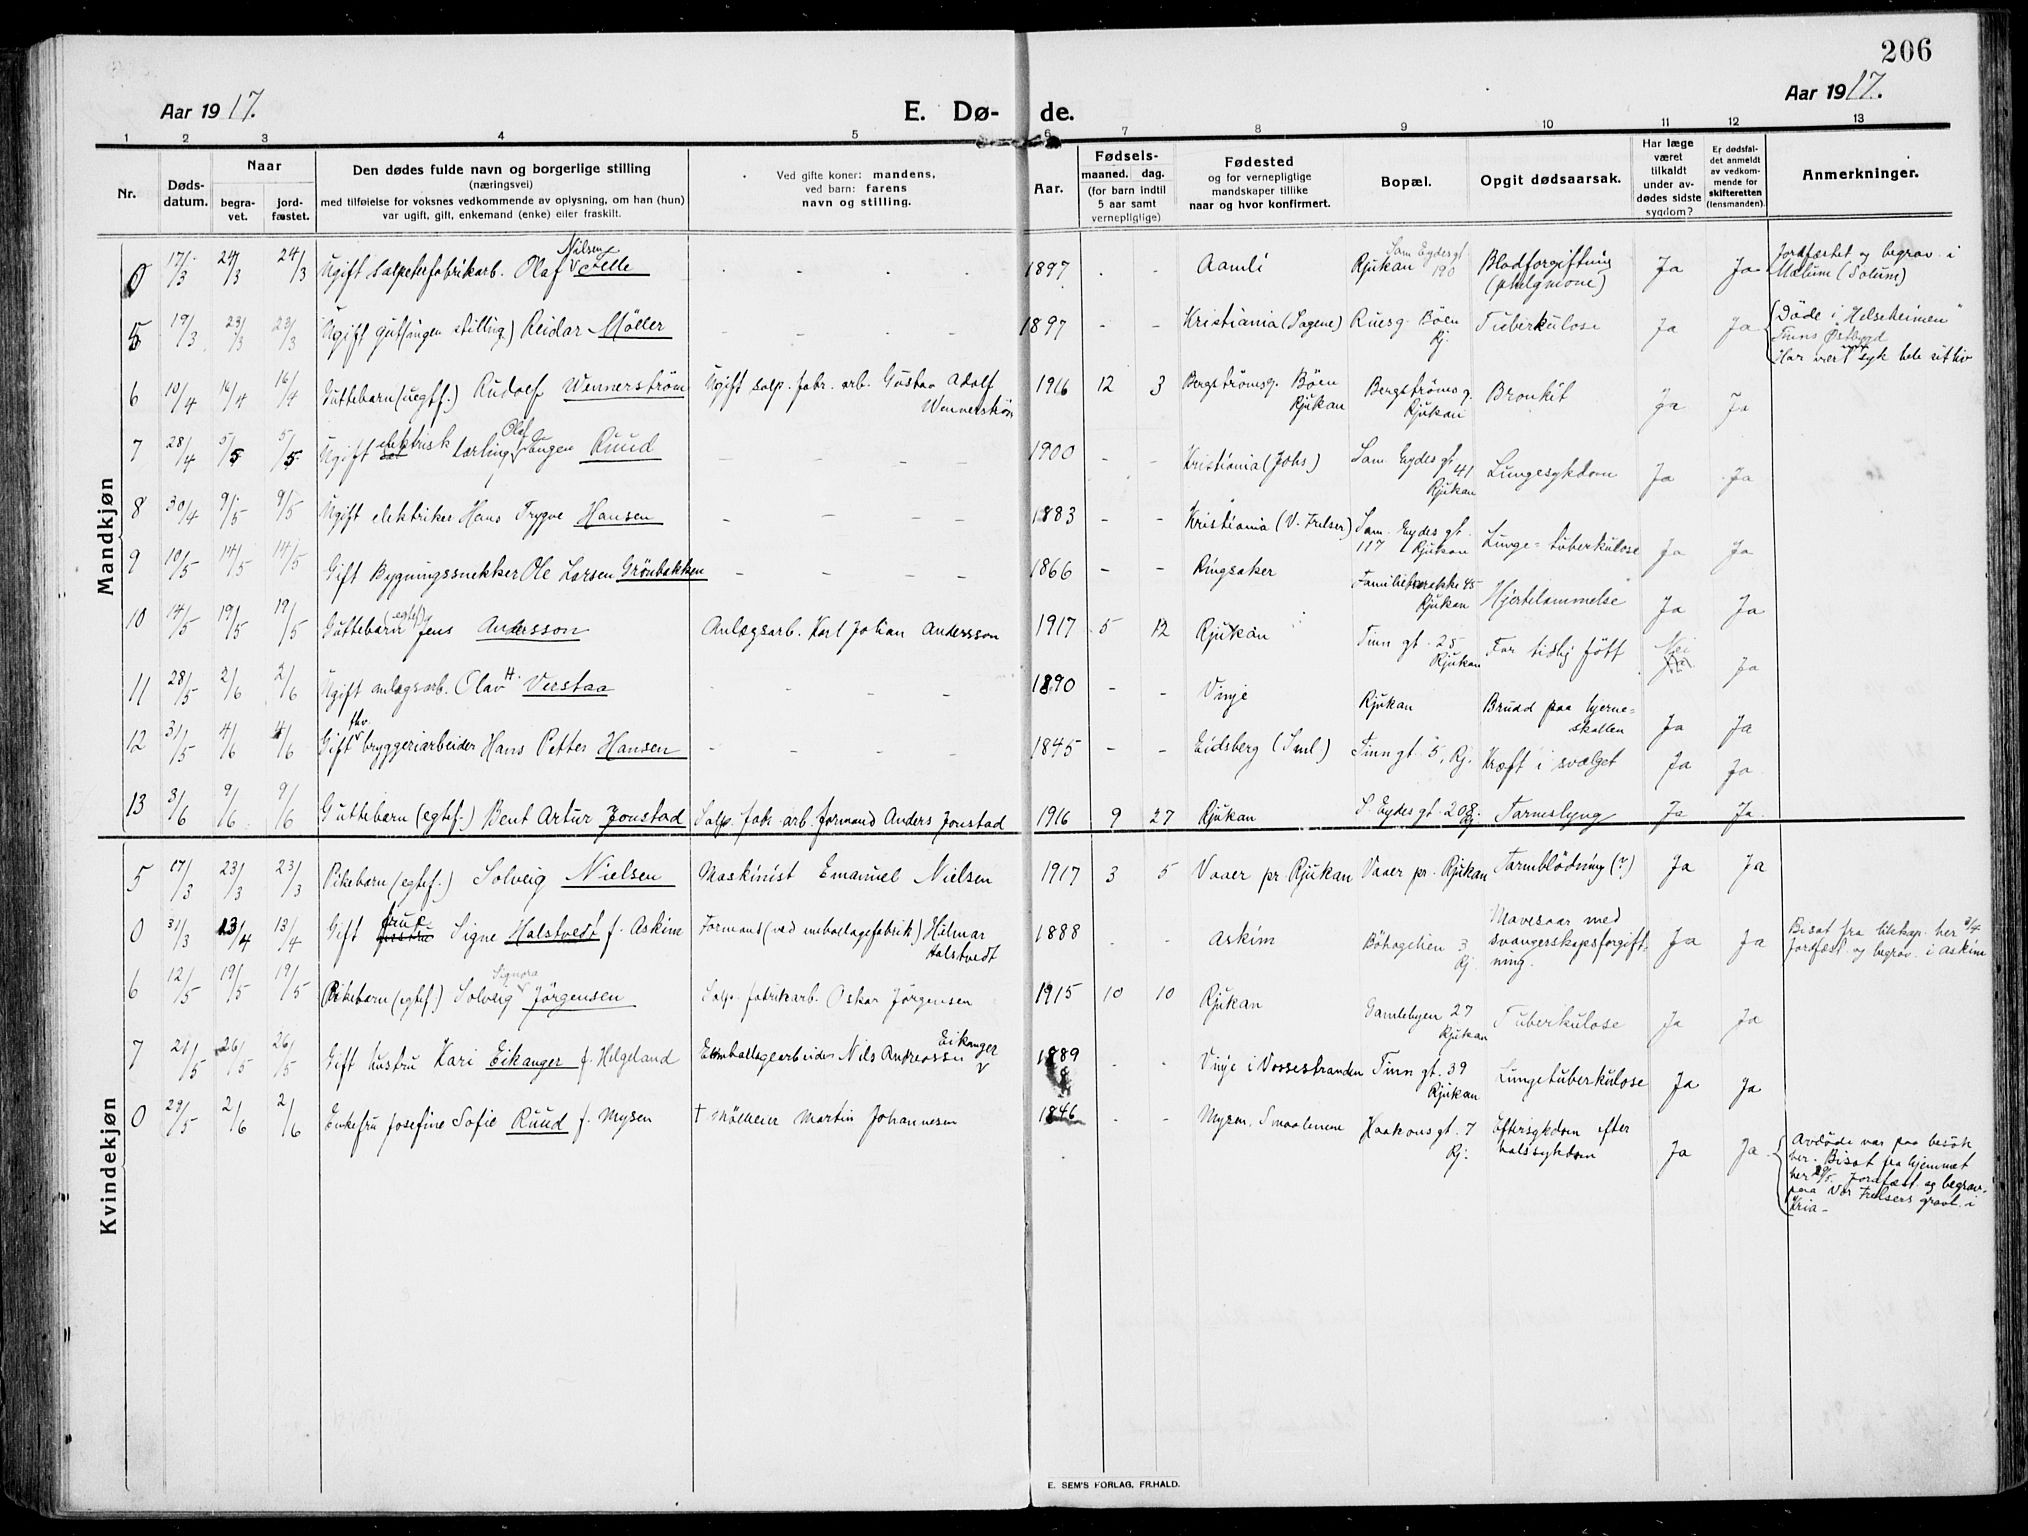 206
Aar 1917.
E. Dø-
de.
Aar 1917.
1 2 3 4 5 6 7 8 9 10 11 12 13
Nr.
Døds-
datum.
Naar
begra-
vet.
jord-
fæstet.
Den dødes fulde navn og borgerlige stilling
(næringsvei)
med tilføielse for voksnes vedkommende av oplysning, om han (hun)
var ugift, gift, enkemand (enke) eller fraskilt.
Ved gifte koner: mandens,
ved barn: farens
navn og stilling.
Aar.
Fødsels-
maaned. dag.
(for barn indtil
5 aar samt
vernepligtige)
Fødested
og for vernepligtige
mandskaper tillike
naar og hvor konfirmert.
Bopæl.
Opgit dødsaarsak.
Har læge
været
tilkaldt
under av-
dødes sidste
sygdom?
Er dødsfal-
det anmeldt
av vedkom-
mende for
skifteretten
(lensmanden).
Anmerkninger.
Mandkjøn
0 17/3 24/3 24/3 Ugift salpeterfabrikarb. Olaf Nilsen Felle - - - 1897 - - Aamli Rjukan Sam Eydesgt 190 Blodforgiftning (phlegmone) Ja Ja Jordfæstet og begrav. i Mælum (Solum)
5 19/3 23/3 23/3 Ugift gut (ingen stilling) Reidar Møller - - - 1897 - - Kristiania (Sagene) Ruesg. Bøen Rj. Tuberkulose Ja Ja Døde i "Helseheimen" Tinns Østbygd Har vært syk hele sit liv
6 10/4 16/4 16/4 Guttebarn (uegtf.) Rudolf Wennerström Ugift salp. fabr. arb. Gustav Adolf Wennerström 1916 12 3 Bergströmsg. Bøen Rjukan Bergströmsg. Rjukan Bronkit Ja Ja
7 28/4 5/5 5/5 Ugift elektrisk lærling Olaf Ruud - - - 1900 - - Kristiania (Johs) Sam. Eydes gt. 41 Rjukan Lungesykdom Ja Ja
8 30/4 9/5 9/5 Ugift elektriker Hans Trygve Hansen - - - 1883 - - Kristiania (V. Frelser) Sam. Eydes gt. 117 Rjukan Lunge-tuberkulose Ja Ja
9 10/5 14/5 14/5 Gift Bygningssnekker Ole Larsen Grönbakken - - - 1866 - - Ringsaker Familiebarakke 45 Rjukan Hjertelammelse Ja Ja
10 14/5 19/5 19/5 Guttebarn (egtef) Jens Andersson Anlægsarb. Karl Johan Andersson 1917 5 12 Rjukan Tinn gt. 25 Rjukan For tidlig født Nei Ja
11 28/5 2/6 2/6 Ugift anlægsarb. Olav H. Verstaa - - - 1890 - - Vinje Rjukan Brudd paa hjerne-skallen Ja Ja
12 31/5 4/6 4/6 Gift fhv. bryggeriarbeider Hans Petter Hansen - - - 1845 - - Eidsberg (Sml.) Tinn gt. 5, Rj. Kræft i svælget Ja Ja
13 3/6 9/6 9/6 Guttebarn (egtef.) Bent Artur Jonstad Salp. fabr. arb. formand Anders Jonstad 1916 9 27 Rjukan S. Eydes gt. 208 Rj. Tarmslyng Ja Ja
Kvindekjøn
5 17/3 23/3 23/3 Pikebarn (egtef.) Solveig Nielsen Maskinist Emanuel Nielsen 1917 3 5 Vaaer pr. Rjukan Vaaer pr. Rjukan Tarmblödning (?) Ja Ja
0 31/3 13/4 13/4 Gift frue Signe Halstvedt f. Askim Formand (ved emballagefabrik) Hilmar Halstvedt 1888 - - Askim Böhagelien 3 Rj. Mavesaar med svangerskapsforgiftning. Ja Ja Bisat fra likkap. her 3/4 Jordfæst. og begrav. i Askim
6 12/5 19/5 19/5 Pikebarn (egtef.) Solveig Signora Jörgensen Salp. fabrikarb. Oskar Jörgensen 1915 10 10 Rjukan Gamlebyen 27 Rjukan Tuberkulose Ja Ja
7 21/5 26/5 26/5 Gift hustru Kari Eikanger f. Helgeland Emballagearbeider Nils Andreassen Eikanger 1889 - - Vinje i Vossestranden Tinn gt. 39 Rjukan Lungetuberkulose Ja Ja
0 29/5 2/6 2/6 Enkefru Josefine Sofie Ruud f. Mysen † Møller Martin Johannesen 1846 - - Mysen, Smaalenene Haakons gt. 7 Rj. Eftersykdom efter halssykdom Ja Ja Avdøde var paa besøk her. Bisat fra hjemmet her 29/5. Jordfæst. og begrav. paa Vor Frelsers gravl. i Kria.
E. SEM'S FORLAG, FR.HALD.